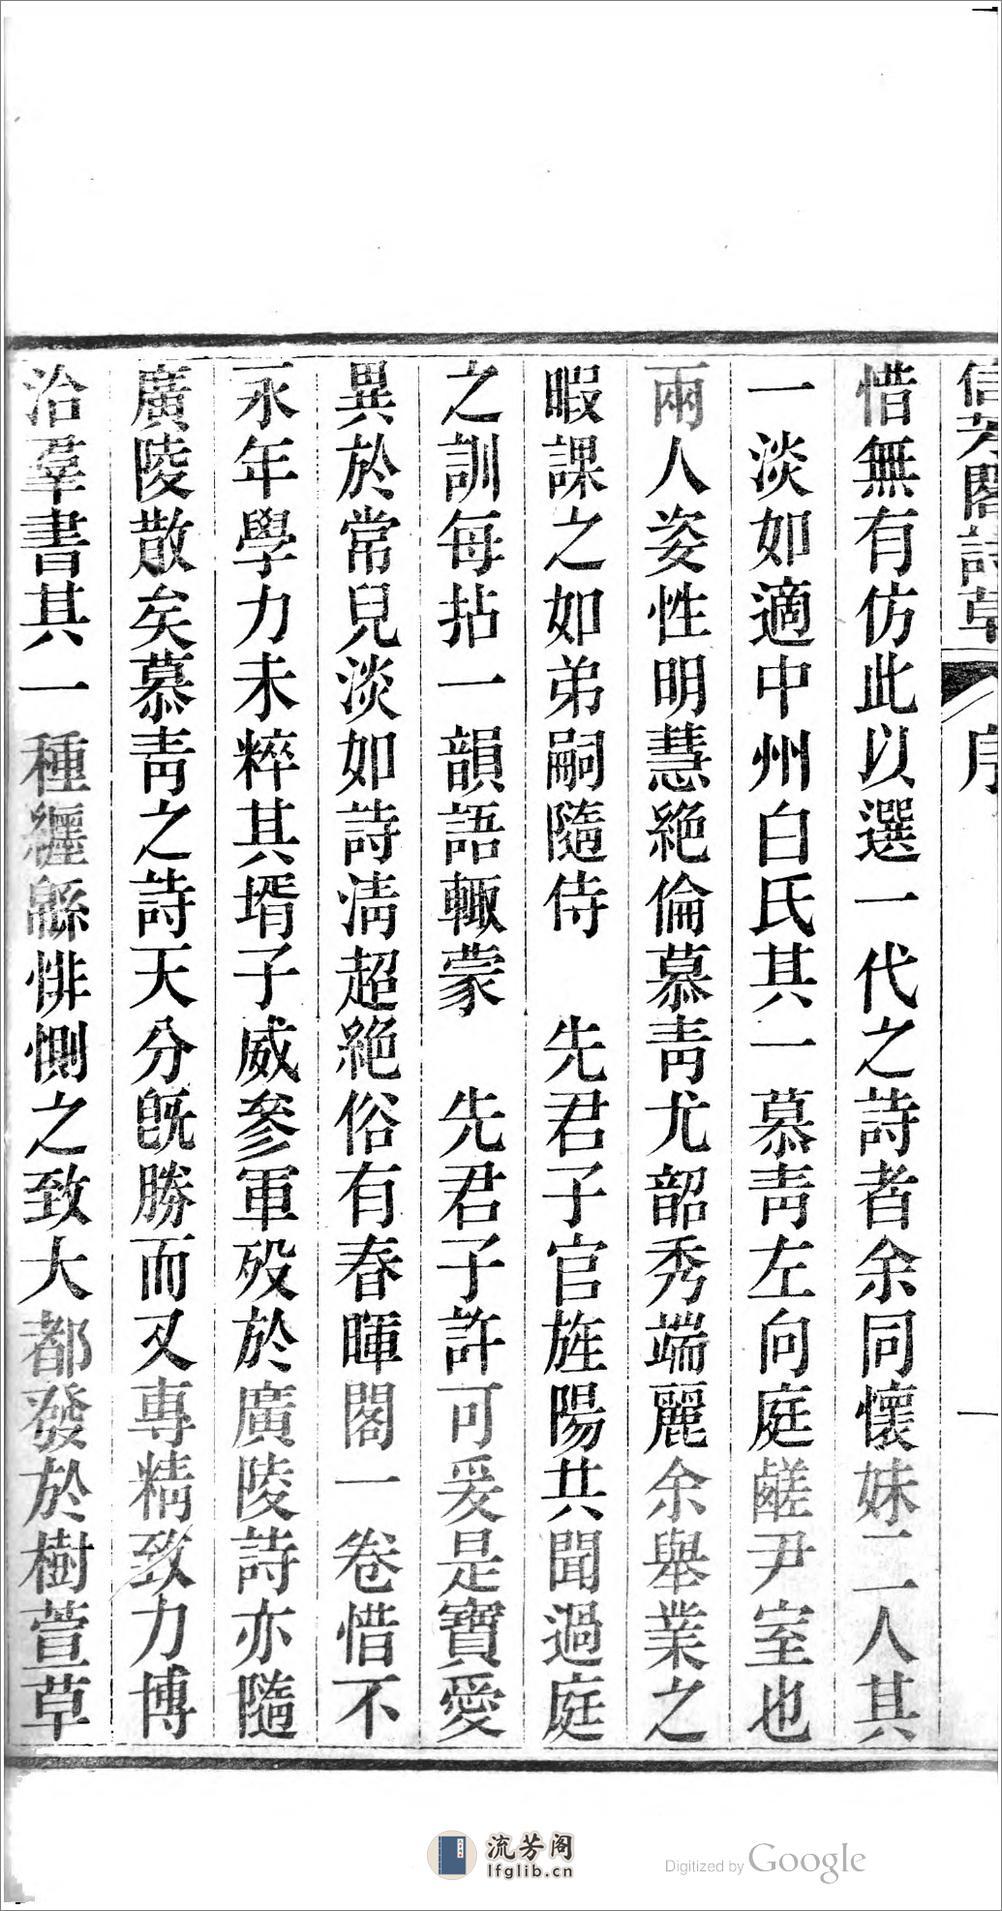 信芳閣詩草
序
一
惜無有仿此以選一代之詩者余同懷妹二人其
一淡如適中州白氏其一慕靑左向庭鹺尹室也
兩人姿性明慧絶倫慕靑尤韶秀端麗余舉業之
暇課之如弟嗣隨侍　先君子官旌陽共聞過庭
之訓每拈一韻語輙蒙　先君子許可爰是寶愛
異於常兒淡如詩淸超絶俗有春暉閣一卷惜不
永年學力未粹其壻子威參軍歿於廣陵詩亦隨
廣陵散矣慕靑之詩天分旣勝而又專精致力博
洽羣書其一種纏緜悱惻之致大都發於樹萱草
流芳阁
lfglib.cn
Digitized by Google